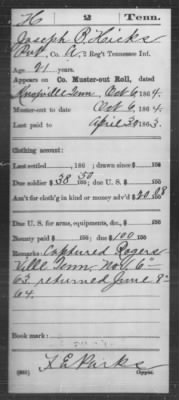 H 2 Tenn.
Joseph R Hicks
Pvt, Co. A, 2 Reg't Tennessee Inf.
Age 21 years.
Appears on Co. Muster-out Roll, dated
Knoxville Tenn. Oct 6, 1864.
Muster-out to date Oct 6, 1864.
Last paid to April 30, 1863.
Clothing account:
Last settled , 186 ; drawn since $ 100
Due soldier $ 38 50/100; due U.S. $ 100
Am't for cloth'g in kind or money adv'd $ 20 08/100
Due U. S. for arms, equipments, &c., $ 100
Bounty paid $ 100; due $ 100 100
Remarks: Captured Rogers
ville Tenn. Nov 6"
63. returned June 8"
64.
Book mark:
L E Parks
(861) Copyist.